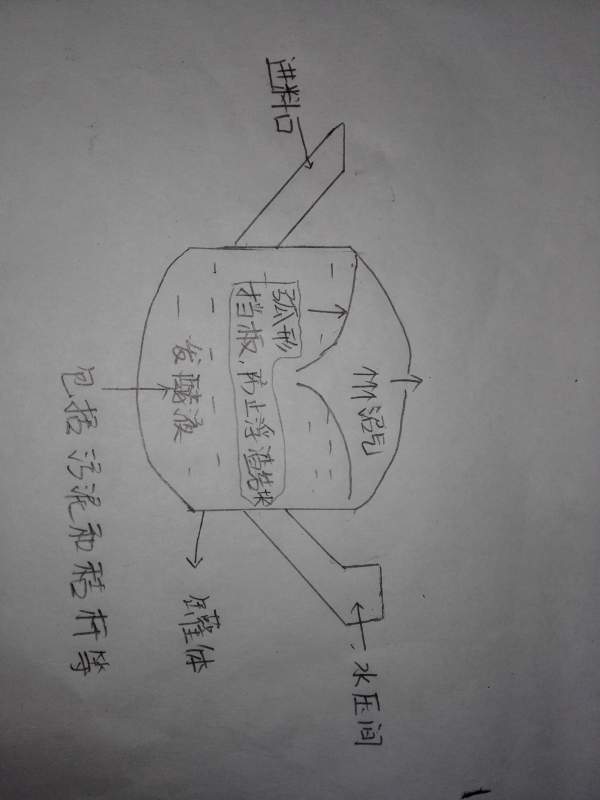 沼气
水压间
进料口
弧形
挡板,防止浮渣结块
发酵液
罐体
包括污泥和秸秆等